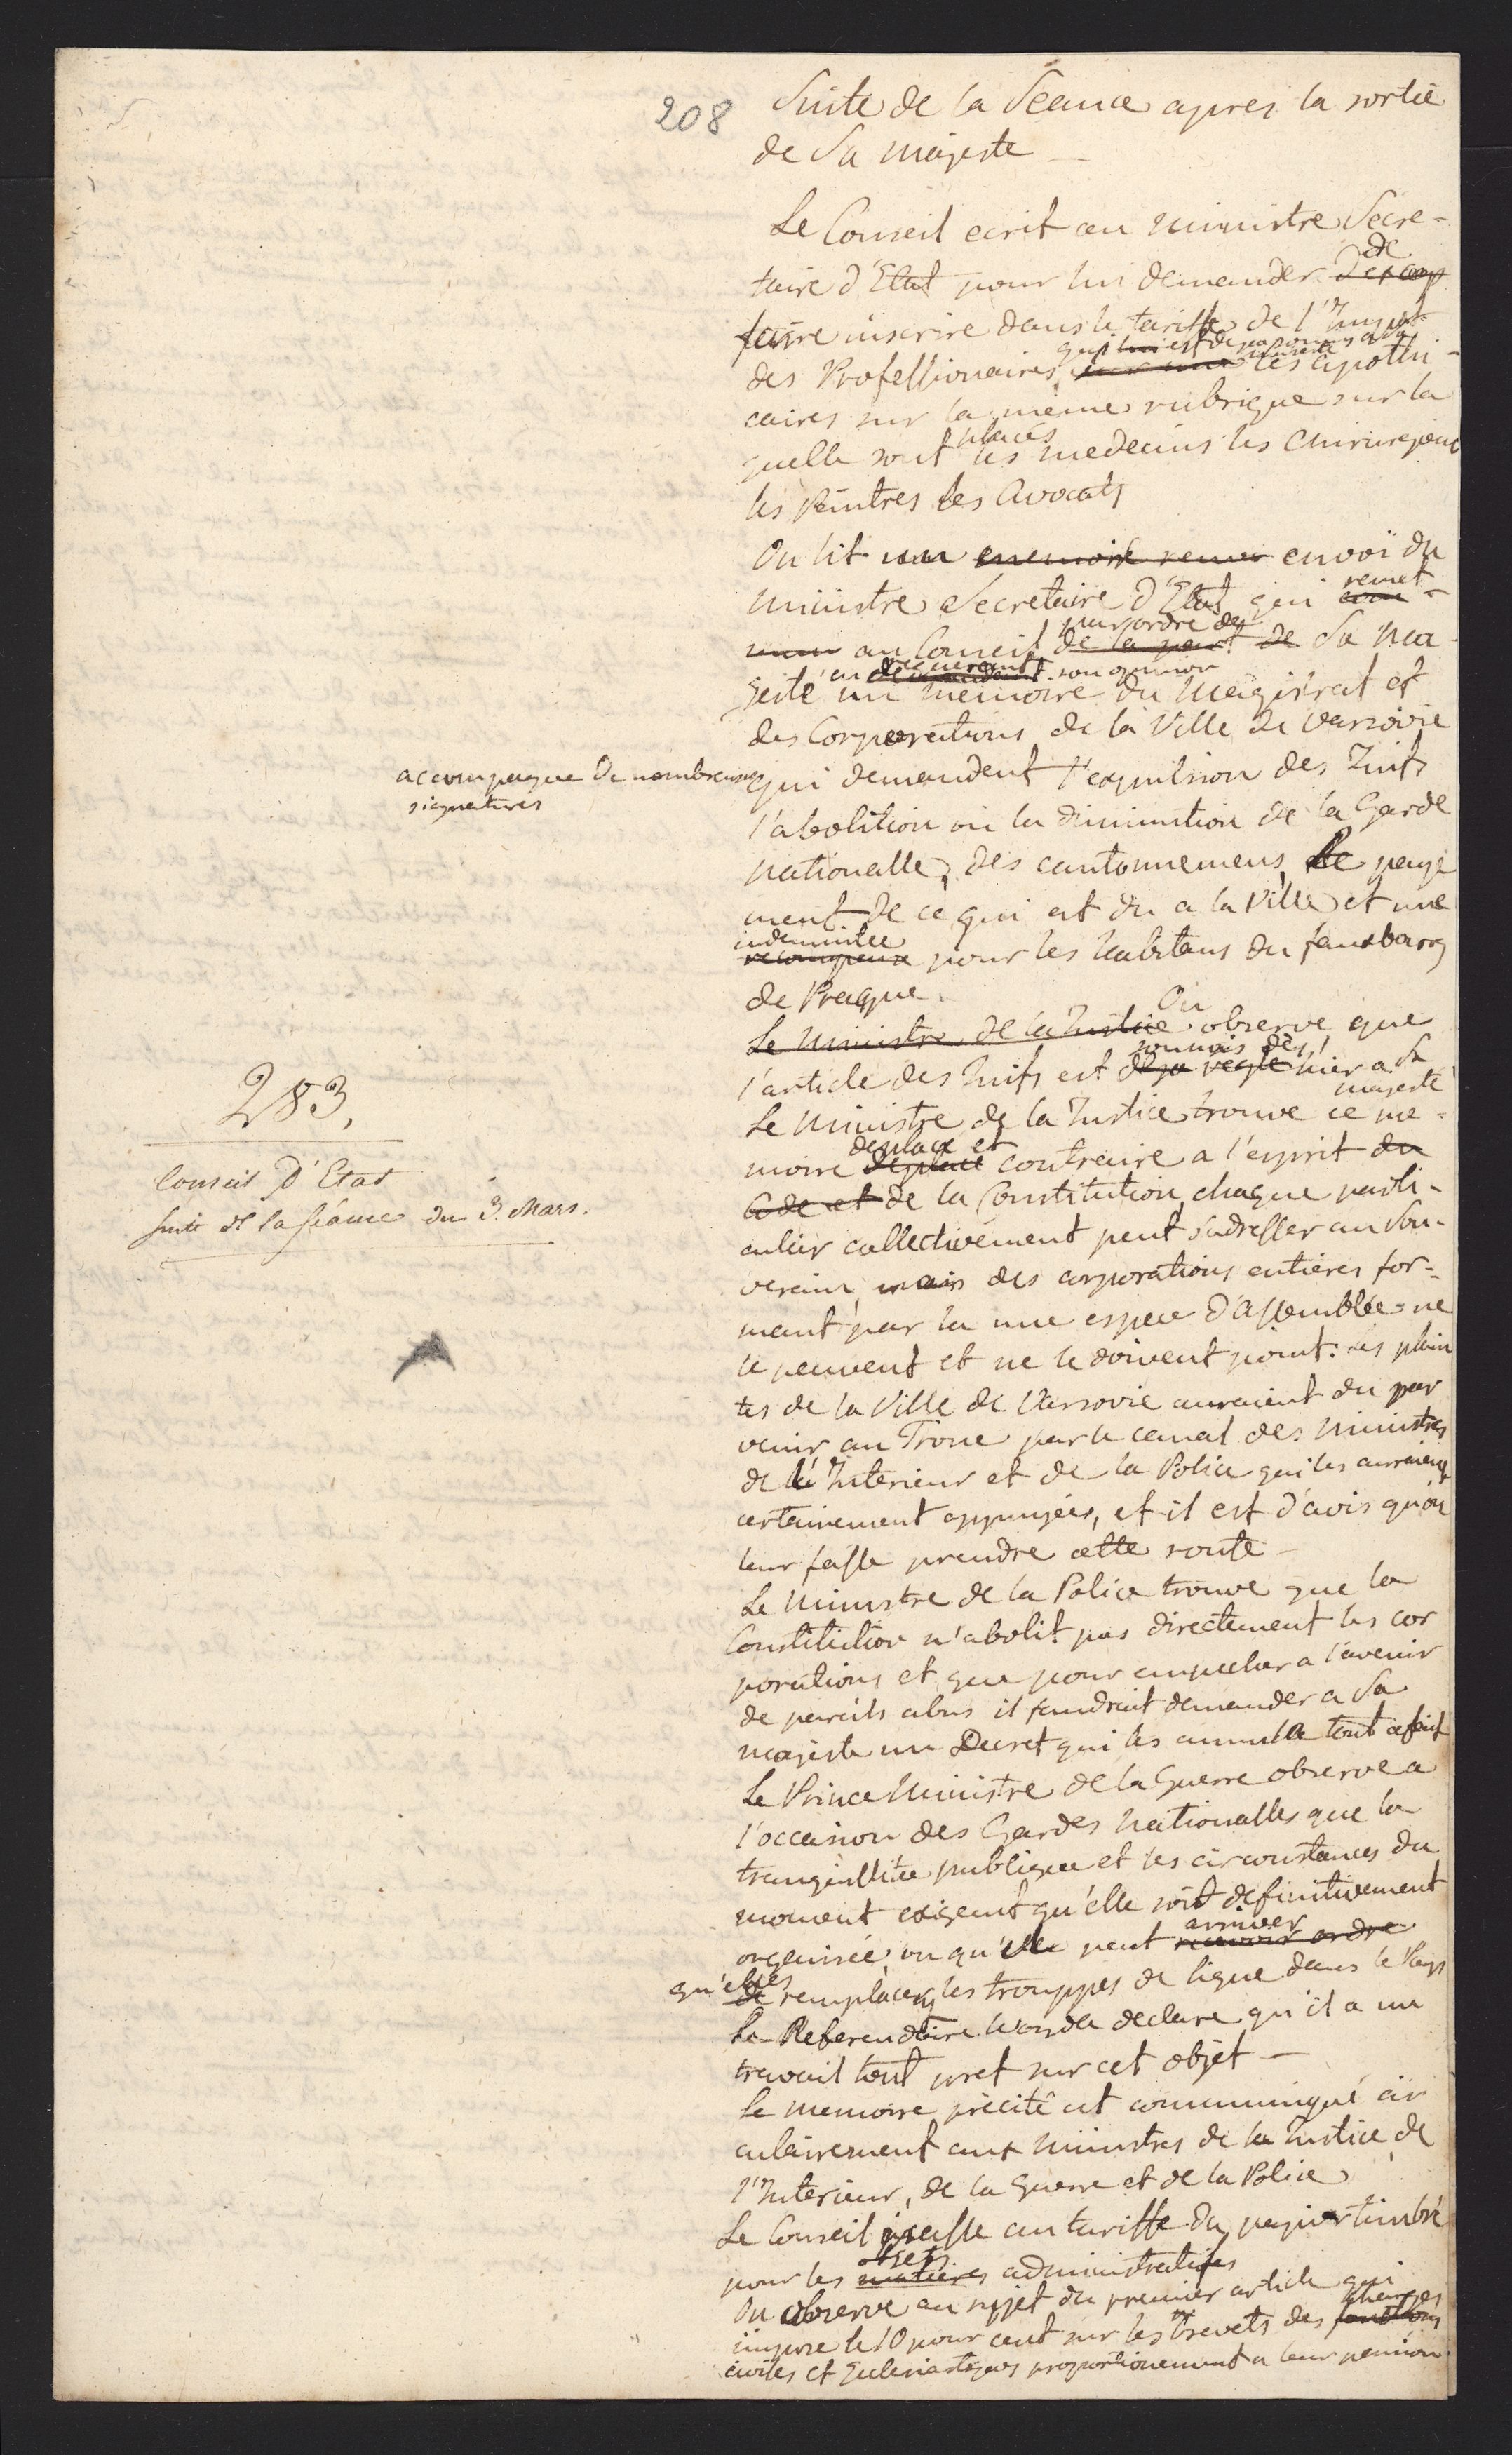 208
Suite de la Séance apres la sortie
de Sa Majeste —
Le Conseil ecrit au Ministre Secre-
taire d'Etat pour lui demander de
faire inscrire dans le tariffe de l'Impot
des Professionaires les apothi-
caires sur la même rubrique sur la
quelle sont placés les medecins les chirurgiens
les Peintres les Avocats
On lit un memoire remis envoi du
Ministre Secretaire d'Etat qui remet
au Conseil par ordre de de la part de Sa Ma-
jesté en requerant demandant son opinion
un memoire du Magistrat et
des Corporations de la Ville de Varsovie
accompagne de nombreuses
signatures
qui demandent l'expulsion des Juifs
l'abolition ou la diminution de la Garde
Nationalle, des cantonnemens, le paye
ment de ce qui est du a la Ville et une
indemnitee recompense pour les habitans du fauxbourg
de Prague.
Le Ministre de la Justice On observe que
l'article des Juifs est soumis dès deja reglé hier a Sa
Majesté
283.
Conseil d'Etat
Suite de la séance du 3. Mars.
Le Ministre de la Justice trouve ce me-
moire deplacé et deplacé contraire a l'esprit du
Code et de la Constitution, chaque parti-
culier collectivement peut s'adresser au Sou-
verain, mais des corporations entieres for-
mant par la une espece d'assemblée ne
le peuvent et ne le doivent point: les plain
tes de la Ville de Varsovie auraient du par
venir au Trone par le canal des Ministres
de l'Interieur et de la Police qui les auraient
certainement appuyées, et il est d'avis qu'on
leur fasse prendre cette route —
Le Ministre de la Police trouve que la
Constitution n'abolit pas directement les cor
porations et que pour empecher a l'avenir
de pareils abus il faudrait demander a Sa
Majeste un Decret qui les annulle tout a fait
Le Prince Ministre de la Guerre observe a
l'occasion des Gardes Nationalles que la
tranquillite publique et les circonstances du
moment exigent qu'elle soit definitivement
organisée, vu qu'il peut arriver recevoir ordre
qu'elles de remplacent les trouppes de ligne dans le Pays
Le Referendaire Woyda declare qu'il a un
travail tout pret sur cet objet —
Le memoire précité est communiqué cir
culairement aux Ministres de la Justice de
l'Interieur, de la Guerre et de la Police
Le Conseil passe au tariffe du papier timbré
pour les objets matieres administratifs
On observe au sujet du premier article qui
impose le 10 pour cent sur les brevets des charges fonctions
civiles et Eclesiastiques proportionement a leur pension